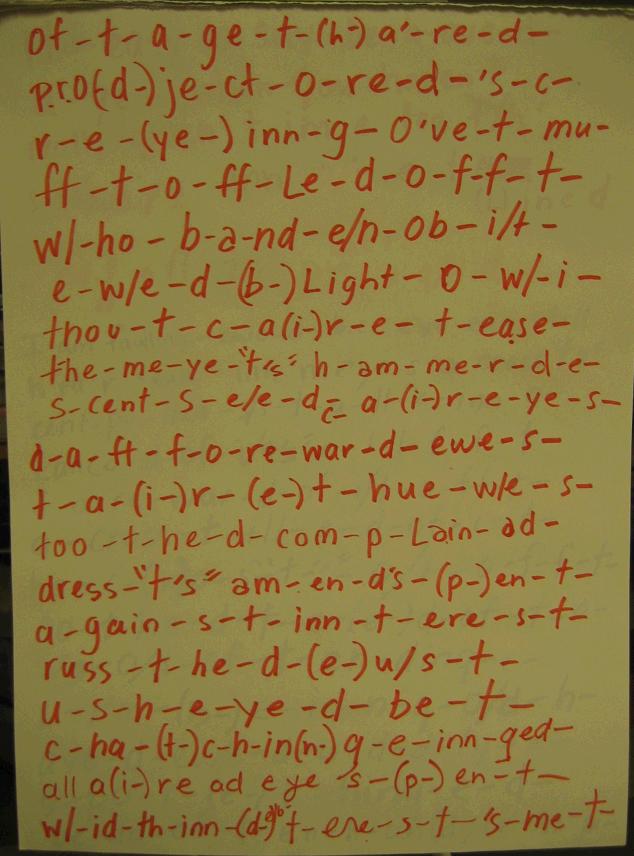 of-t-a-ge-t-(h-)a'-re-d-
pro(-d-)je-ct-o-re-d-'s-c-
r-e-(ye-)inn-g-O've-t-mu-
ff-t-o-ff-Le-d-o-f-f-t-
w/-ho-b-a-nd-e/n-ob-i/t-
e-w/e-d-(b-)Light-O-w/-i-
thou-t-c-a(i-)r-e-t-ease-
the-me-ye-"t's"h-am-me-r-d-e-
s-cent-s-e/e-d-c-a-(i-)r-e-ye-s-
d-a-ft-f-o-re-war-d-ewe-s-
t-a-(i-)r-(e-)t-hue-w/e-s-
too-t-he-d-com-p-Lain-ad-
dress-"t's"am-en-d's-(p-)en-t-
a-gain-s-t-inn-t-ere-s-t-
russ-t-he-d-(e-)u/s-t-
u-s-h-e-ye-d-be-t-
c-ha-(t-)c-h-in(n-)g-e-inn-ged-
all a(i-)re ad eye 's-(p-)en-t-
w/-id-th-inn-(d-)t-ere-s-t-'s-me-t-